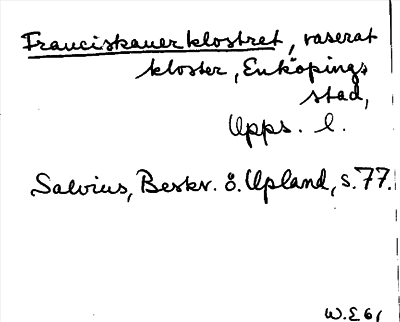 Franciskanerklostret, raserat
kloster, Enköpings
stad,
Upps. l.
Salvius, Beskr. ö. Upland, s. 77.
W. E 61